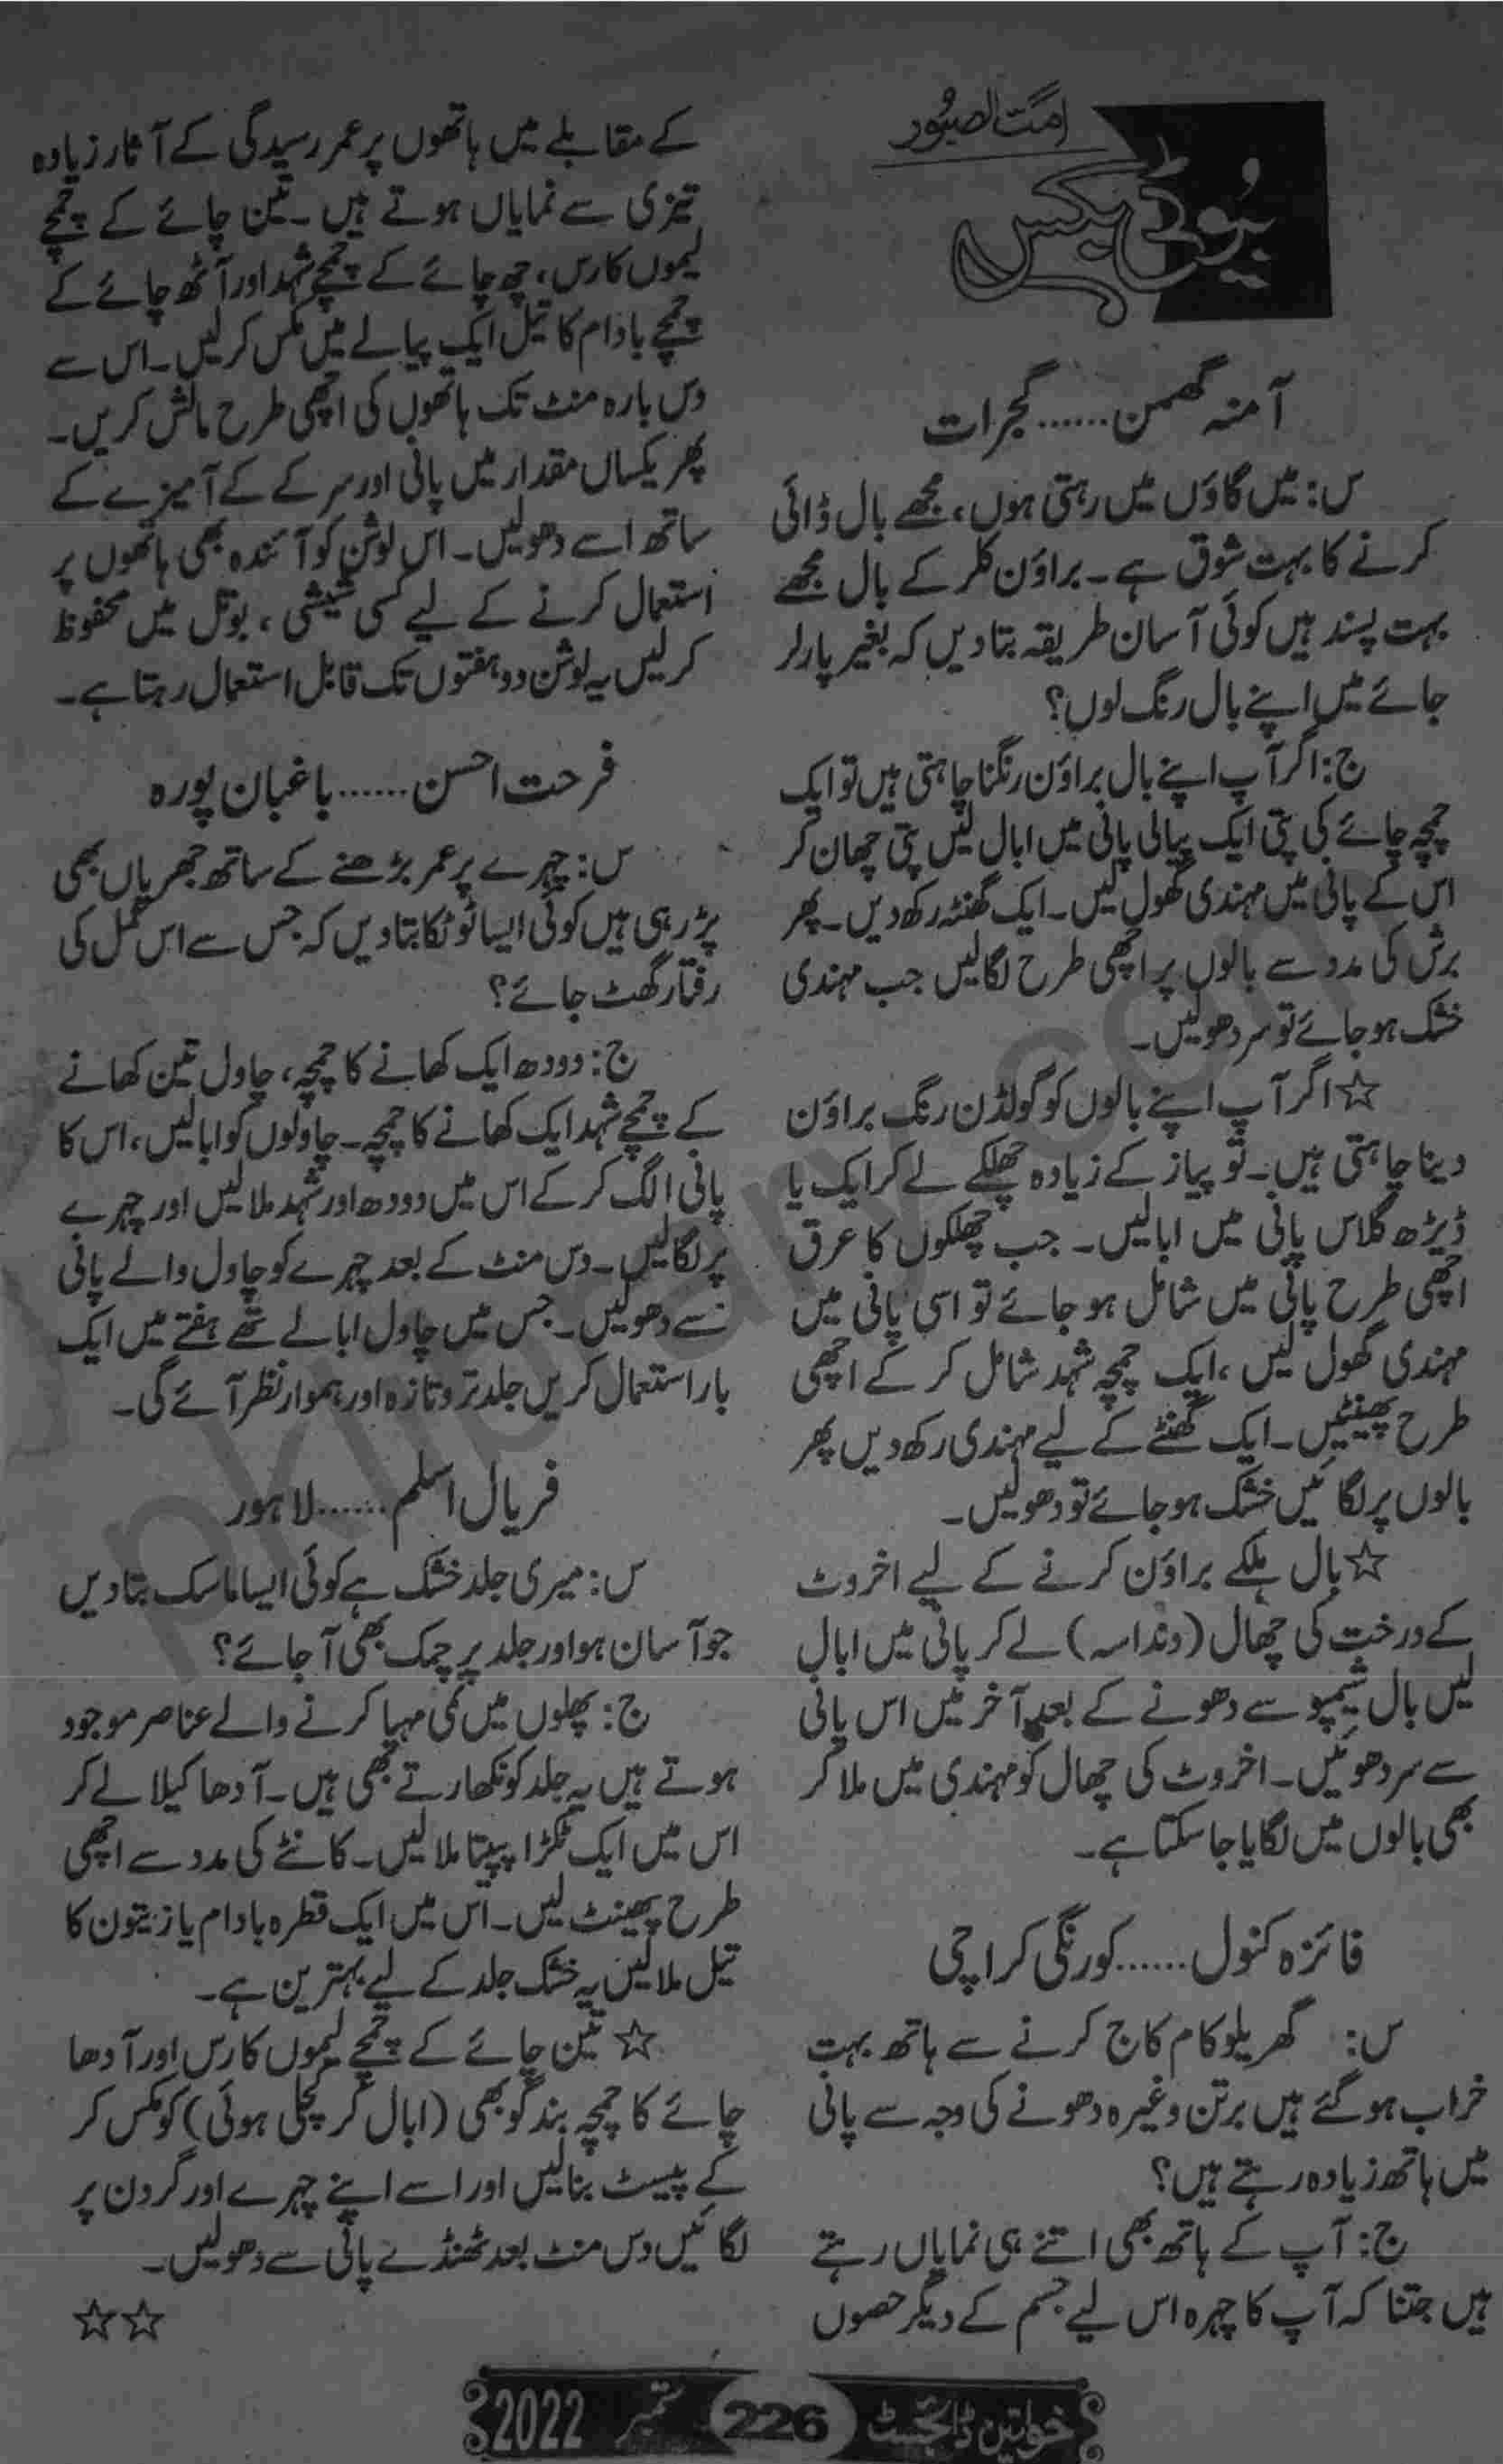 امت الصبور
بیوٹی بکس
آمنہ گھمن......گجرات
س: میں گاؤں میں رہتی ہوں، مجھے بال ڈائی
کرنے کا بہت شوق ہے۔ براؤن کلر کے بال مجھے
بہت پسند ہیں کوئی آسان طریقہ بتا دیں کہ بغیر پارلر
جائے میں اپنے بال رنگ لوں؟
ج: اگر آپ اپنے بال براؤن رنگنا چاہتی ہیں تو ایک
چمچہ چائے کی پتی ایک پیالی پانی میں ابال لیں پتی چھان کر
اس کے پانی میں مہندی گھول لیں۔ ایک گھنٹہ رکھ دیں۔ پھر
برش کی مدد سے بالوں پر اچھی طرح لگالیں جب مہندی
خشک ہو جائے تو سر دھولیں۔
☆ اگر آپ اپنے بالوں کو گولڈن رنگ براؤن
دینا چاہتی ہیں۔ تو پیاز کے زیادہ چھلکے لے کر ایک یا
ڈیڑھ گلاس پانی میں ابالیں۔ جب چھلکوں کا عرق
اچھی طرح پانی میں شامل ہو جائے تو اسی پانی میں
مہندی گھول لیں، ایک چمچہ شہد شامل کر کے اچھی
طرح پھینٹیں۔ ایک گھنٹے کے لیے مہندی رکھ دیں پھر
بالوں پر لگائیں خشک ہو جائے تو دھولیں۔
☆ بال ہلکے براؤن کرنے کے لیے اخروٹ
کے درخت کی چھال (دنداسہ) لے کر پانی میں ابال
لیں بال شیمپو سے دھونے کے بعد آخر میں اس پانی
سے سر دھوئیں۔ اخروٹ کی چھال کو مہندی میں ملا کر
بھی بالوں میں لگایا جا سکتا ہے۔
فائزہ کنول......کورنگی کراچی
س: گھریلو کام کاج کرنے سے ہاتھ بہت
خراب ہو گئے ہیں برتن وغیرہ دھونے کی وجہ سے پانی
میں ہاتھ زیادہ رہتے ہیں؟
ج: آپ کے ہاتھ بھی اتنے ہی نمایاں رہتے
ہیں جتنا کہ آپ کا چہرہ اس لیے جسم کے دیگر حصوں
کے مقابلے میں ہاتھوں پر عمر رسیدگی کے آثار زیادہ
تیزی سے نمایاں ہوتے ہیں۔ تین چائے کے چمچے
لیموں کا رس، چھ چائے کے چمچے شہد اور آٹھ چائے کے
چمچے بادام کا تیل ایک پیالے میں مکس کرلیں۔ اس سے
دس بارہ منٹ تک ہاتھوں کی اچھی طرح مالش کریں۔
پھر یکساں مقدار میں پانی اور سرکے کے آمیزے کے
ساتھ اسے دھولیں۔ اس لوشن کو آئندہ بھی ہاتھوں پر
استعمال کرنے کے لیے کسی شیشی، بوتل میں محفوظ
کرلیں یہ لوشن دو ہفتوں تک قابل استعمال رہتا ہے۔
فرحت احسن......باغبان پورہ
س: چہرے پر عمر بڑھنے کے ساتھ جھریاں بھی
پڑ رہی ہیں کوئی ایسا ٹوٹکا بتا دیں کہ جس سے اس عمل کی
رفتار گھٹ جائے؟
ج: دودھ ایک کھانے کا چمچہ، چاول تین کھانے
کے چمچے شہد ایک کھانے کا چمچہ۔ چاولوں کو ابالیں، اس کا
پانی الگ کر کے اس میں دودھ اور شہد ملالیں اور چہرے
پر لگالیں۔ دس منٹ کے بعد چہرے کو چاول والے پانی
سے دھولیں۔ جس میں چاول ابالے تھے ہفتے میں ایک
بار استعمال کریں جلد تر و تازہ اور ہموار نظر آئے گی۔
فریال اسلم......لاہور
س: میری جلد خشک ہے کوئی ایسا ماسک بتا دیں
جو آسان ہو اور جلد پر چمک بھی آ جائے؟
ج: پھلوں میں نمی مہیا کرنے والے عناصر موجود
ہوتے ہیں یہ جلد کو نکھارتے بھی ہیں۔ آدھا کیلا لے کر
اس میں ایک ٹکڑا پپیتا ملالیں۔ کانٹے کی مدد سے اچھی
طرح پھینٹ لیں۔ اس میں ایک قطرہ بادام یا زیتون کا
تیل ملالیں یہ خشک جلد کے لیے بہترین ہے۔
☆ تین چائے کے چمچے لیموں کا رس اور آدھا
چائے کا چمچہ بند گوبھی (ابال کر کچلی ہوئی) کو مکس کر
کے پیسٹ بنالیں اور اسے اپنے چہرے اور گردن پر
لگائیں دس منٹ بعد ٹھنڈے پانی سے دھولیں۔
☆☆
خواتین ڈائجسٹ 226 ستمبر 2022
pklibrary.com